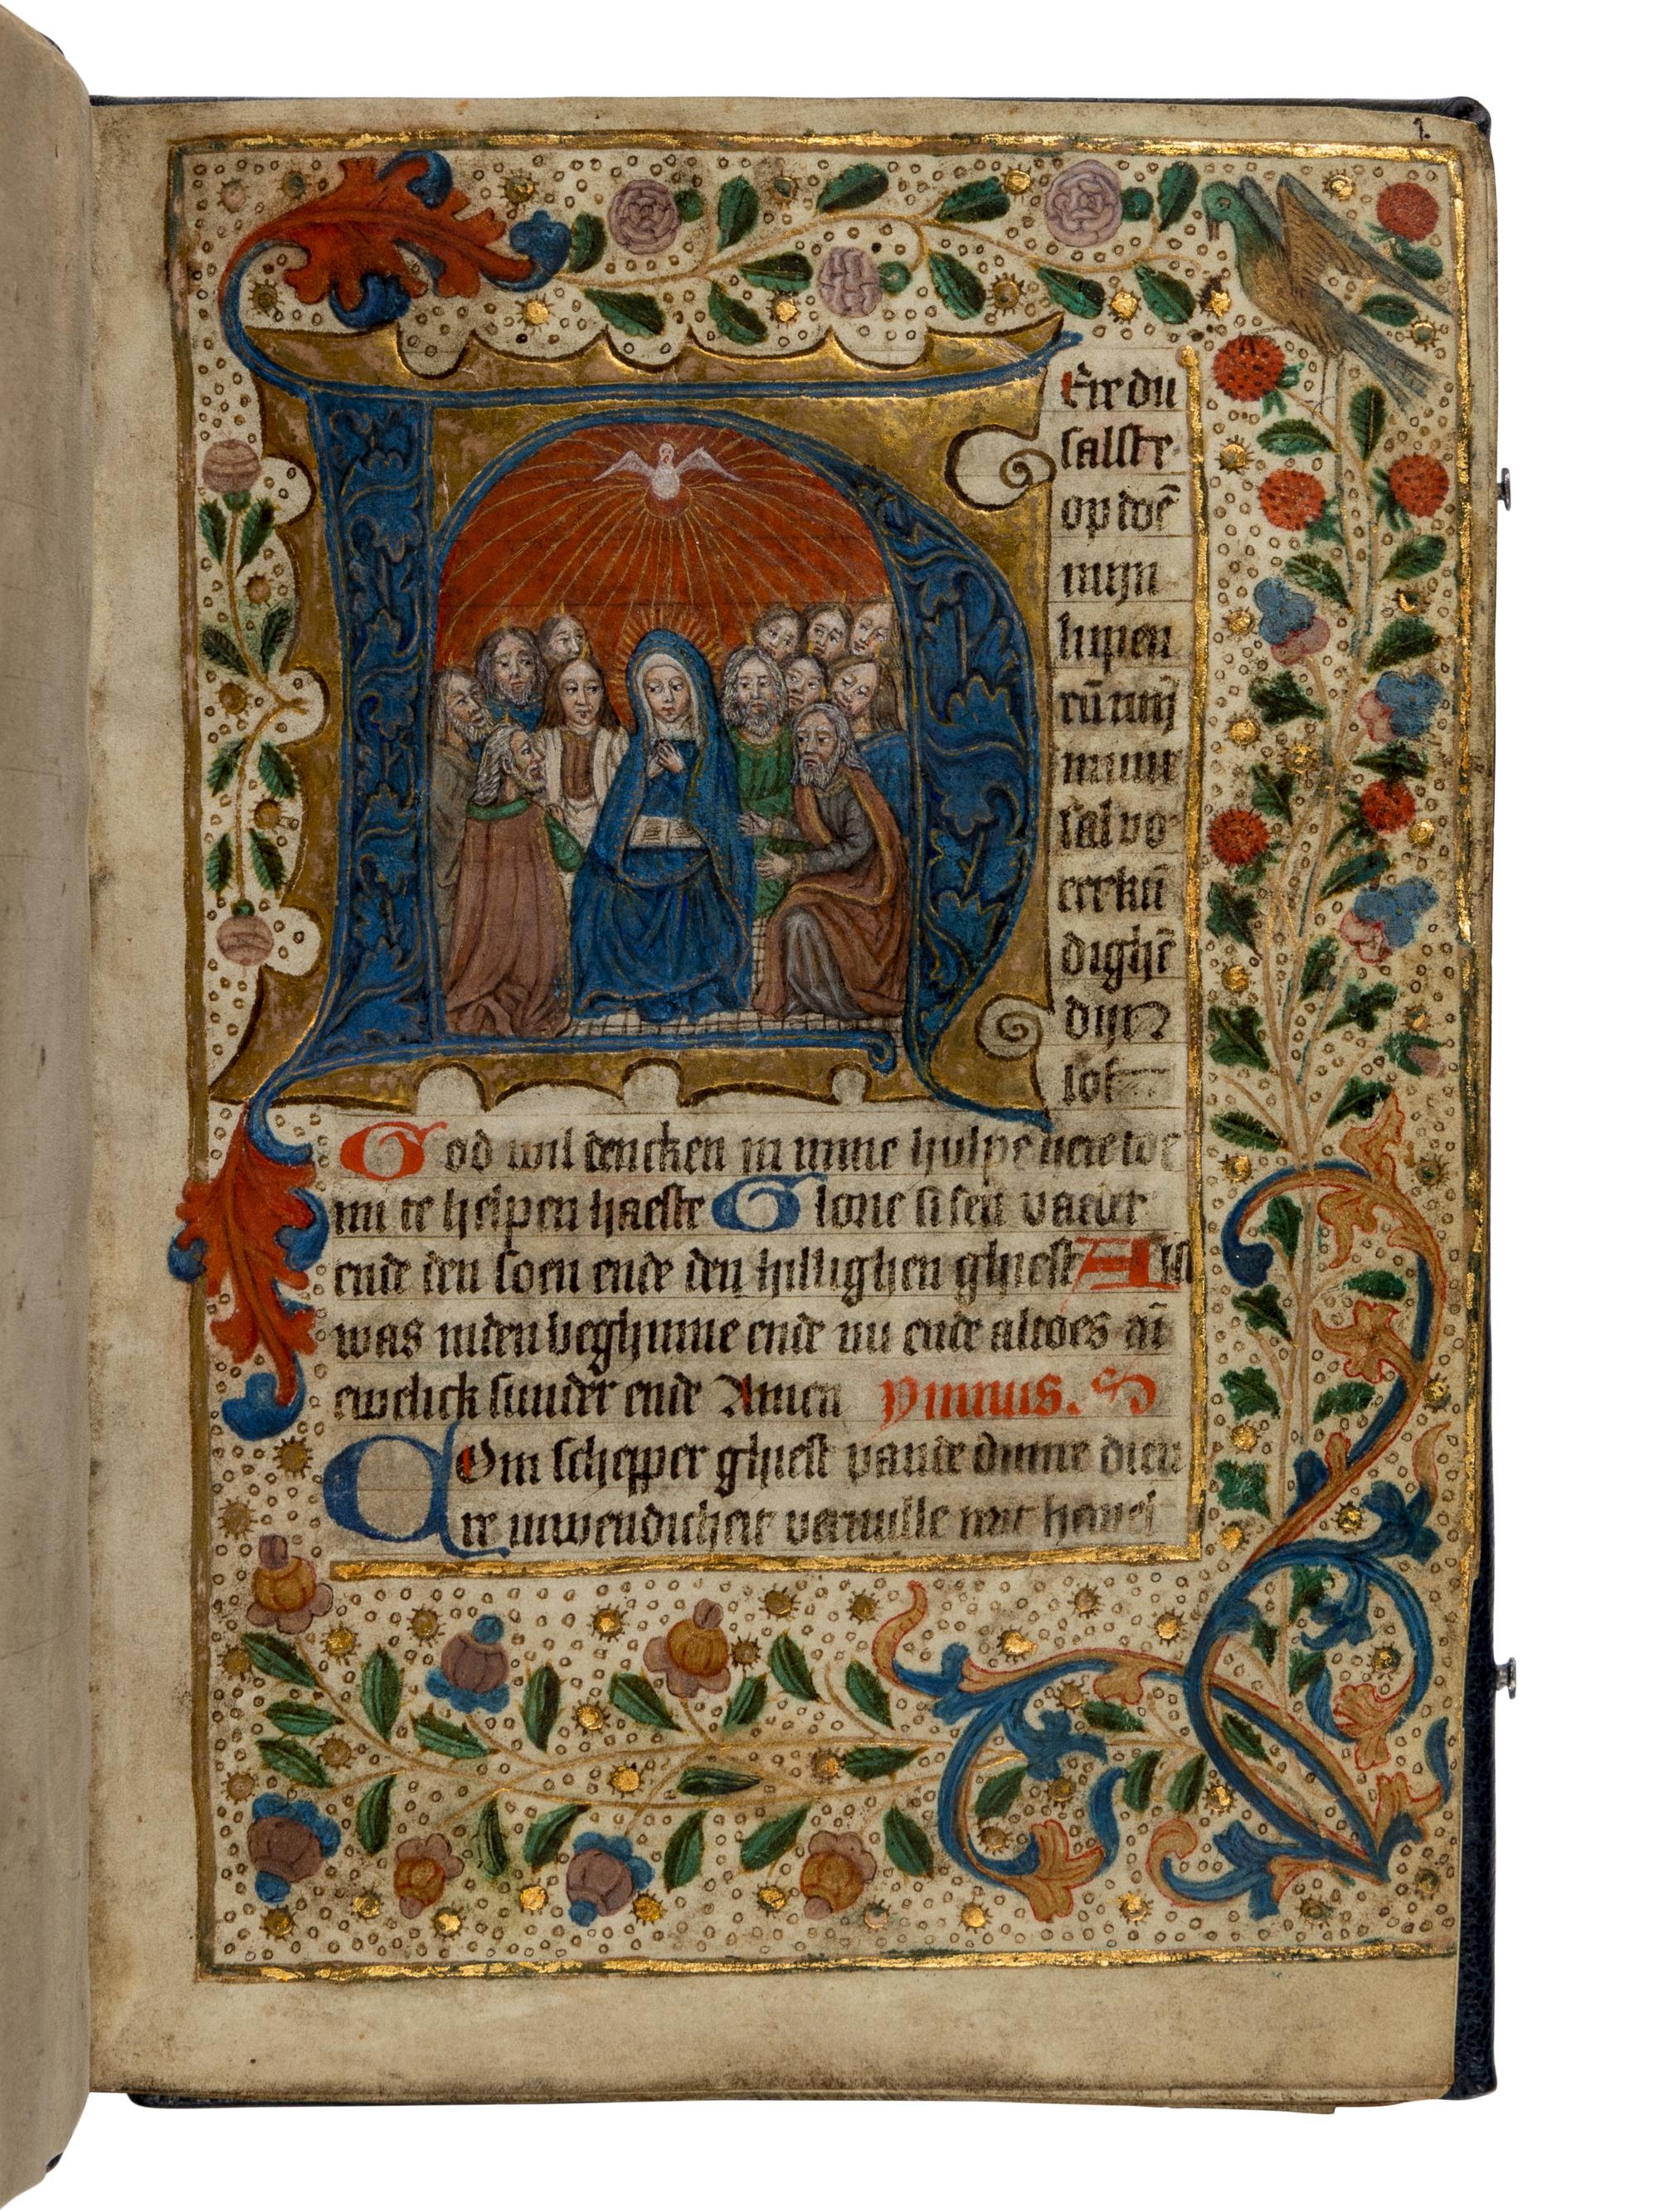 1.
HEre du
salste
op doē
mijn
lippen
eñ mij
mūt
sal vor
cūdighē
dijn
lof
God wil dencken in mine hulpe here toe
mi te helpen haeste Glorie si den vader
ende den soen ende den hillighen ghiest Als
was inden beghinne ende nu ende altoes añ
ewelick sunder ende Amen Ymnus.
COm schepper ghiest vande dinre dien
re inwendicheit vervulle mit hemel